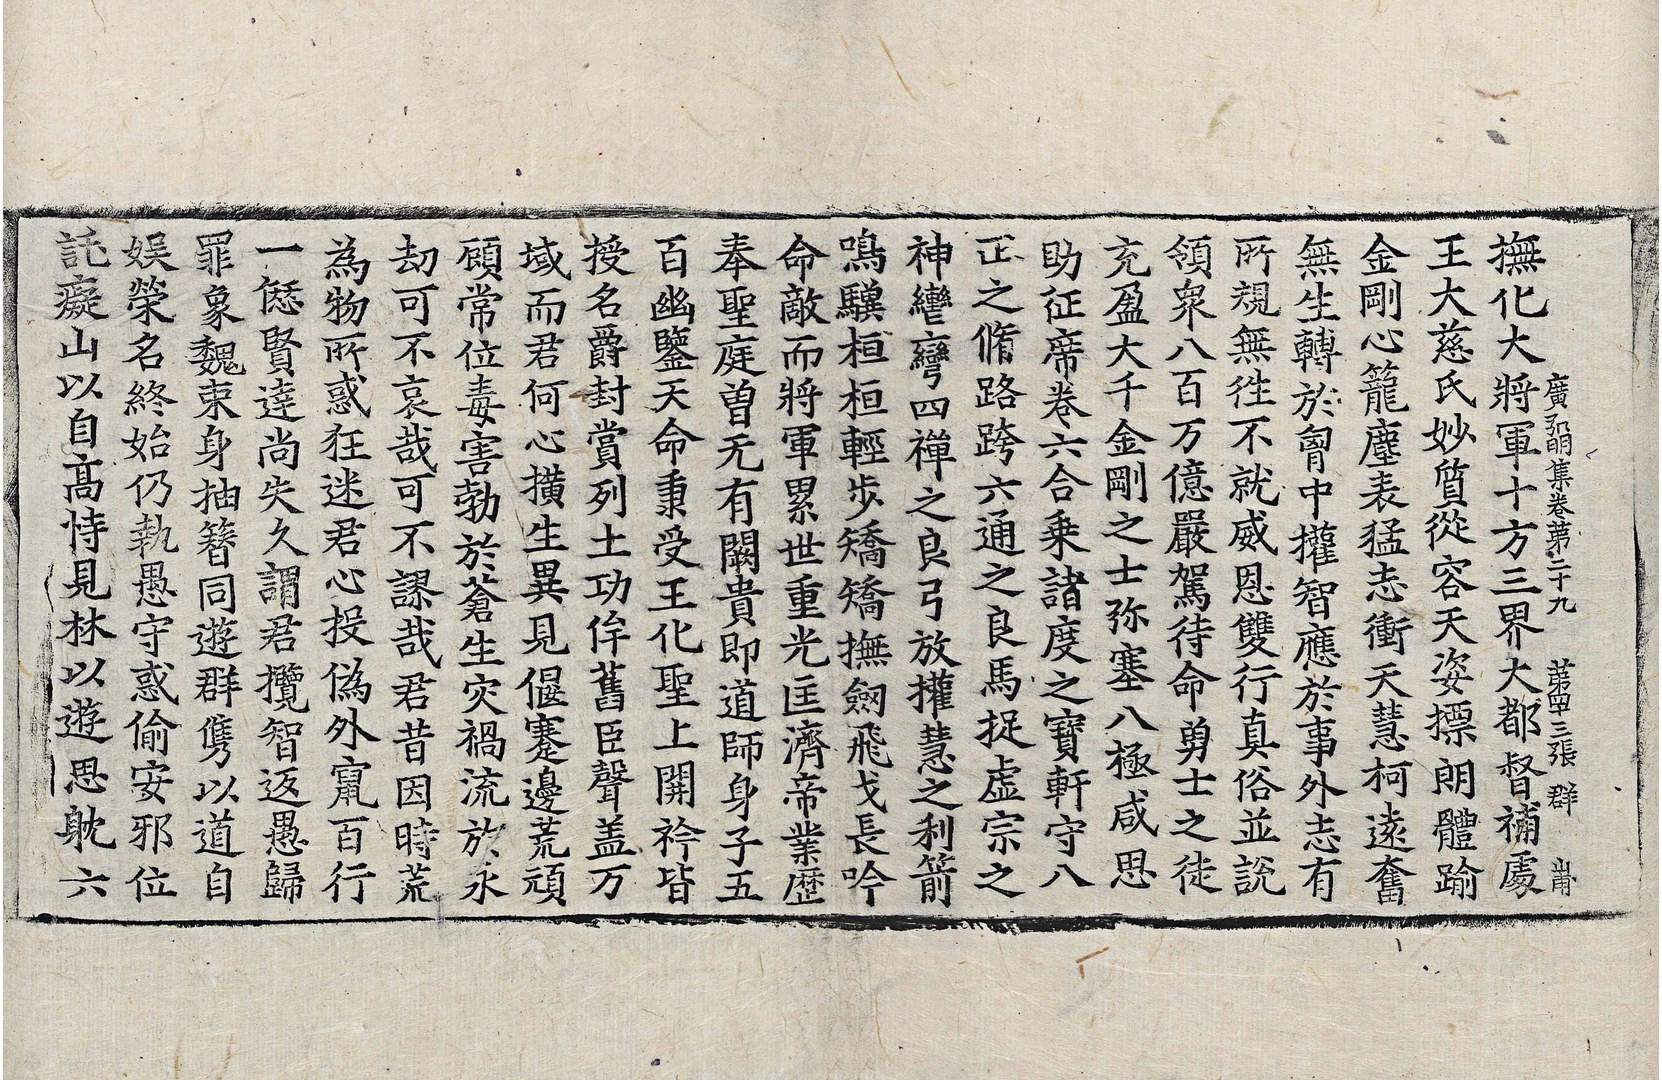 廣弘明集卷第二十九 第四十三張 群
撫化大將軍十方三界大都督補處
王大慈氏妙質從容天姿摽朗體踰
金剛心籠塵表猛志衝天慧柯遠奮
無生轉於胷中權智應於事外志有
所規無徃不就威恩雙行真俗並說
領衆八百万億嚴駕待命勇士之徒
充盈大千金剛之士弥塞八極咸思
助征席卷六合乗諸度之寶軒守八
正之脩路跨六通之良馬捉虛宗之
神轡彎四禪之良弓放權慧之利箭
鳴驥桓桓輕步矯矯撫劒飛戈長吟
命敵而將軍累世重光匡濟帝業歷
奉聖庭曽无有闕貴即道師身子五
百幽鑒天命秉受王化聖上開衿皆
授名爵封賞列土功侔舊臣聲盖万
域而君何心撗生異見偃蹇邊荒頑
顧常位毒害勃於蒼生灾禍流於永
劫可不哀哉可不謬哉君昔因時荒
為物所惑狂迷君心投偽外竄百行
一愆賢達尚失久謂君攬智返愚歸
罪象魏束身抽簪同遊群儁以道自
娛榮名終始仍執愚守惑偷安邪位
託癡山以自高恃見林以遊思躭六